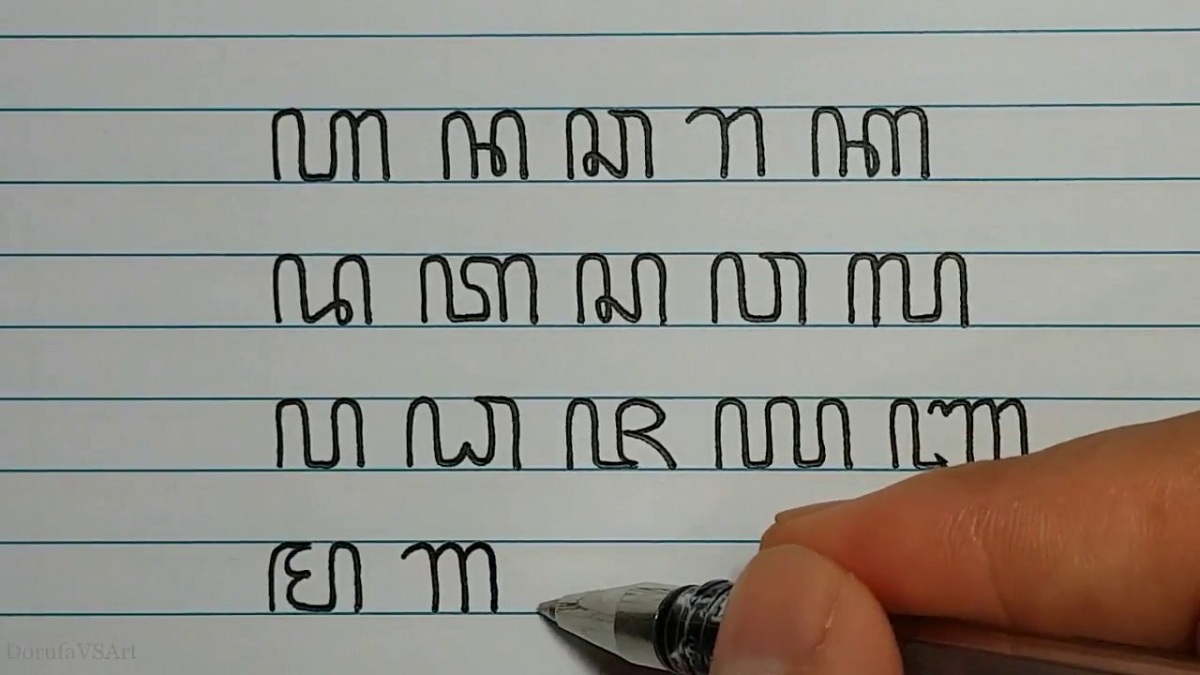 ꦲ ꦤ ꦕ ꦫ ꦏ
ꦢ ꦠ ꦱ ꦮ ꦭ
ꦥ ꦝ ꦗ ꦪ ꦚ
ꦩ ꦒ
DorufaVSArt